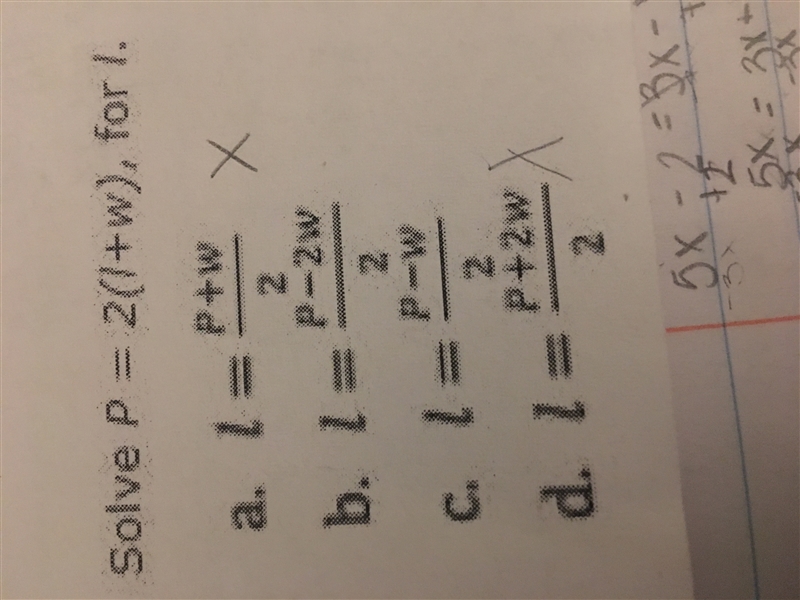 Solve P = 2(l+w), for l.
a. l = P+w / 2 X
b. l = P-2w / 2
c. l = P-w / 2
d. l = P+2w / 2 X
5x - 2 = 3x -
+2
-3x
5x = 3x +
-3x